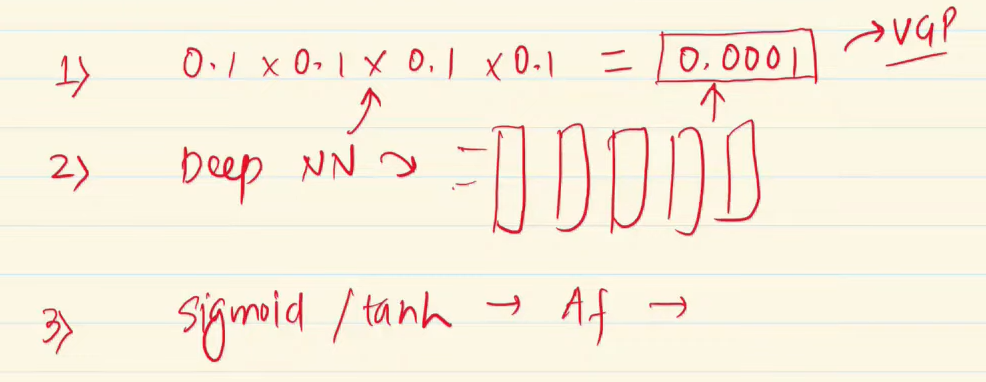 1) 0.1 x 0.1 x 0.1 x 0.1 = 0.0001 → VGP
2) Deep NN →
3) sigmoid / tanh → Af →